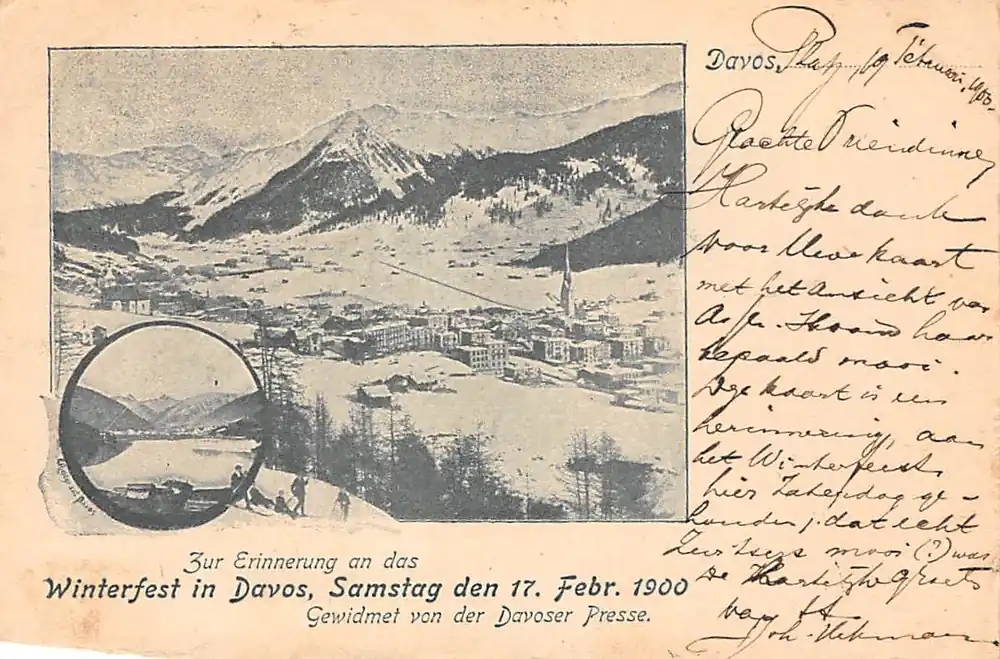 Davos, Platz, 19 Februari 1900.
Geachte Vriendinne,
Hartelijke dank
voor Uwe kaart
met het Ansicht van
haar
bepaald mooi.
kaart is een
herinnering, aan
het Winterfeest,
hier Zaterdag ge-
houden; dat echt
Zwitsers mooi (?) was
De Hartelijke Groets
van
Joh.
Zur Erinnerung an das
Winterfest in Davos, Samstag den 17. Febr. 1900
Gewidmet von der Davoser Presse.